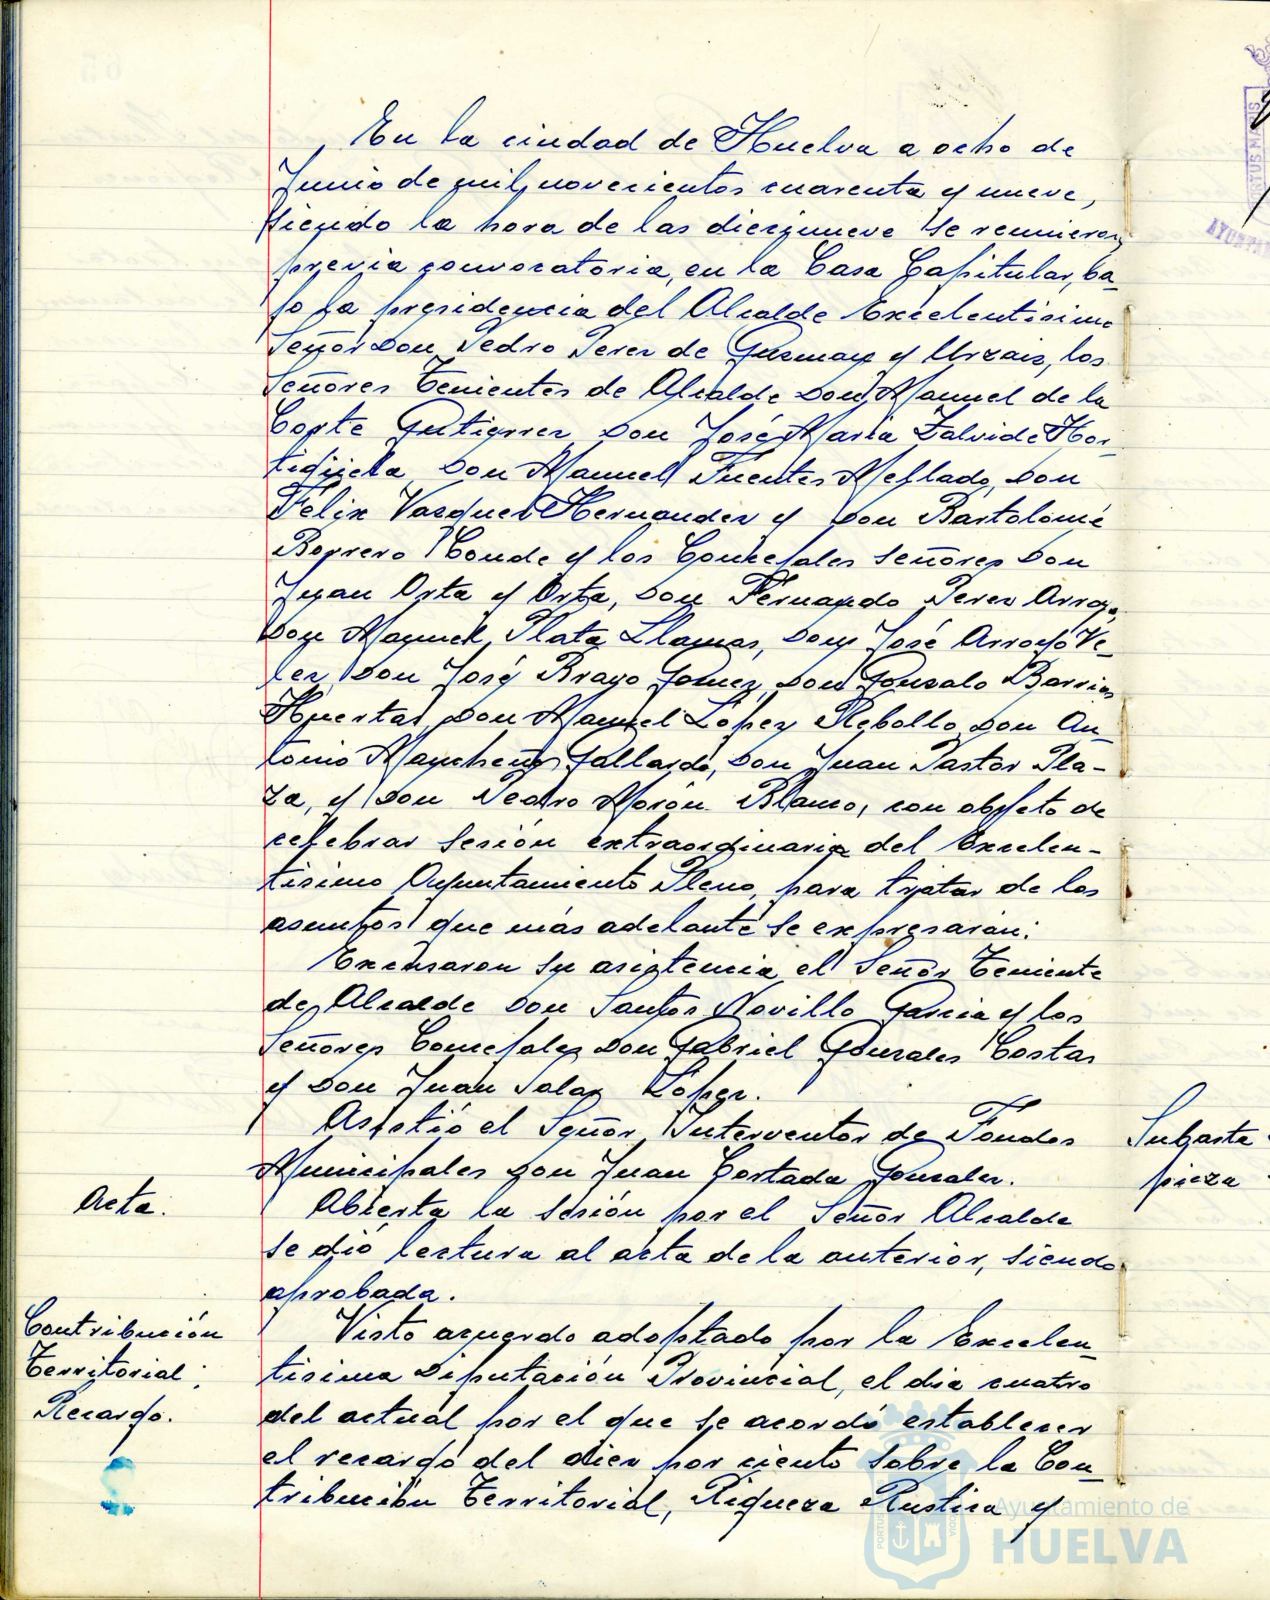 En la ciudad de Huelva a ocho de
Junio de mil novecientos cuarenta y nueve,
siendo la hora de las diecinueve se reunieron
previa convocatoria, en la Casa Capitular, ba-
jo la presidencia del Alcalde Excelentisimo
Señor Don Pedro Perez de Guzman y Urzaiz, los
Señores Tenientes de Alcalde Don Manuel de la
Corte Gutierrez Don José Maria Zalvide Hor-
tigüela Don Manuel Fuentes Mellado, Don
Felix Vazquez Hernandez y Don Bartolomé
Borrero Conde y los Concejales Señores Don
Juan Orta y Orta, Don Fernando Perez Arroyo,
Don Manuel Plata Llamas, Don José Arroyo Ve-
lez, Don José Bravo Gomez, Don Gonzalo Barrios
Huertas, Don Manuel López Rebollo, Don An-
tonio Mancheño Gallardo, Don Juan Pastor Pla-
za, y Don Pedro Morón Blanco, con objeto de
celebrar sesión extraordinaria del Excelen-
tisimo Ayuntamiento Pleno, para tratar de los
asuntos que más adelante se expresarán:
Excusaron su asistencia el Señor Teniente
de Alcalde Don Santos Novillo Garcia y los
Señores Concejales Don Gabriel Gonzalez Costas
y Don Juan Salas López.
Asistió el Señor Interventor de Fondos
Municipales Don Juan Cortada Gonzalez.
Acta.
Abierta la sesión por el Señor Alcalde
se dió lectura al acta de la anterior, siendo
aprobada.
Contribución
Territorial:
Recargo.
Visto acuerdo adoptado por la Excelen-
tisima Diputación Provincial, el dia cuatro
del actual por el que se acordó establecer
el recargo del diez por ciento sobre la Con-
tribución Territorial, Riqueza Rustica y
Subasta
pieza
Ayuntamiento de
HUELVA